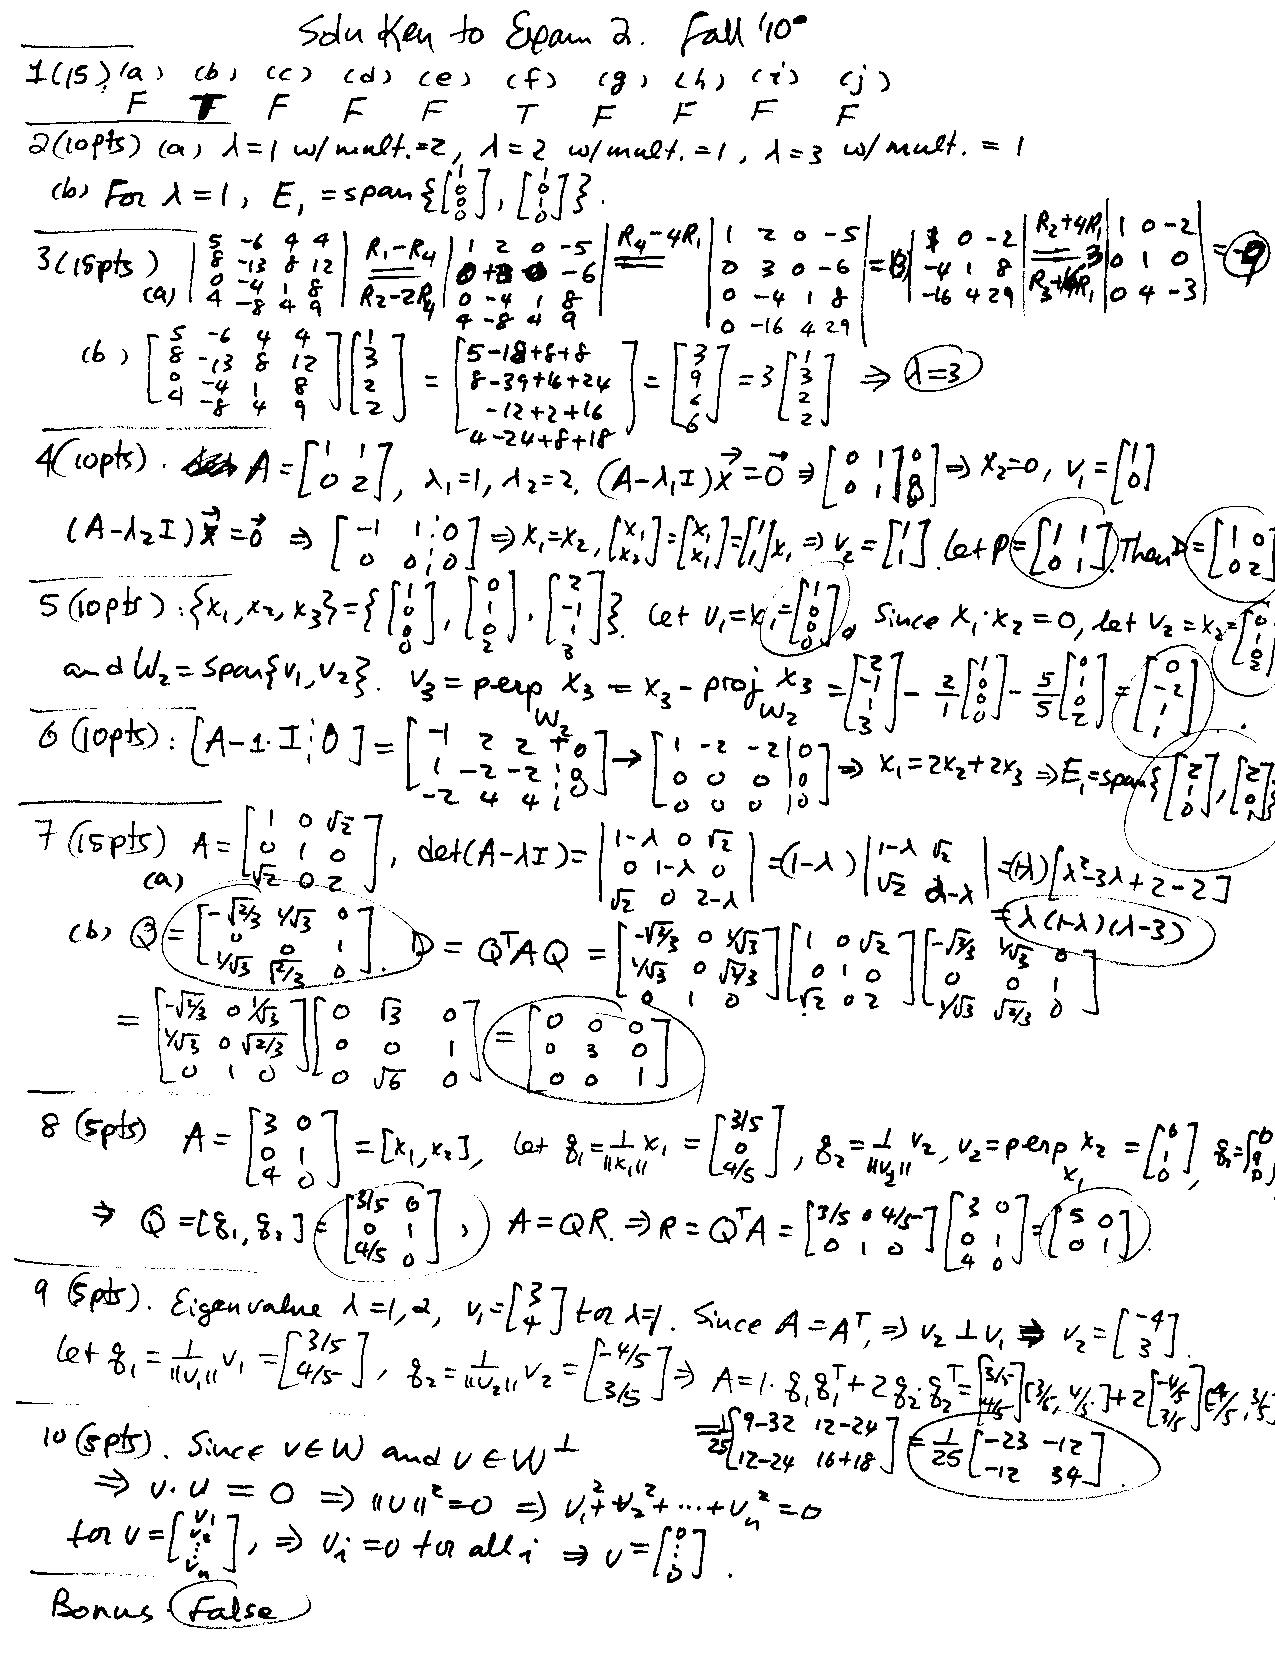 Soln Key to Exam 2. Fall '10
1(15) (a) (b) (c) (d) (e) (f) (g) (h) (i) (j)
F T F F F T F F F F
2(10pts) (a) λ=1 w/ mult.=2, λ=2 w/ mult.=1, λ=3 w/ mult. = 1
(b) For λ=1, E₁ = span{[1 0 0 0], [1 1 0]}.
3(15pts) (a) |5 -6 4 4; 8 -13 8 12; 0 -4 1 8; 4 -8 4 9| R₁-R₄ R₂-2R₄ |1 2 0 -5; 0 +3 0 -6; 0 -4 1 8; 4 -8 4 9| R₄-4R₁ |1 2 0 -5; 0 3 0 -6; 0 -4 1 8; 0 -16 4 29| = 3 |1 0 -2; -4 1 8; -16 4 29| R₂+4R₁ |1 0 -2; 0 1 0; 0 4 -3| = -9
(b) [5 -6 4 4; 8 -13 8 12; 0 -4 1 8; 4 -8 4 9][1; 3; 2; 2] = [5-18+8+8; 8-39+16+24; -12+2+16; 4-24+8+18] = [3; 9; 6; 6] = 3[1; 3; 2; 2] ⇒ λ=3
4(10pts). A = [1 1; 0 2], λ₁=1, λ₂=2. (A-λ₁I)x⃗=0⃗ ⇒ [0 1 0; 0 1 0] ⇒ x₂=0, v₁=[1; 0]
(A-λ₂I)x⃗=0⃗ ⇒ [-1 1 0; 0 0 0] ⇒ x₁=x₂, [x₁; x₂]=[x₁; x₁]=[1; 1]x₁ ⇒ v₂=[1; 1]. Let P=[1 1; 0 1]. Then D=[1 0; 0 2]
5(10pts): {x₁, x₂, x₃}={[1; 0; 0; 0], [0; 1; 0; 2], [2; -1; 1; 3]}. Let v₁=x₁=[1; 0; 0; 0]. Since x₁·x₂=0, let v₂=x₂=[0; 1; 0; 2]
and W₂=span{v₁,v₂}. v₃=perp_W₂ x₃ = x₃-proj_W₂ x₃ = [2; -1; 1; 3] - 2/1[1; 0; 0; 0] - 5/5[0; 1; 0; 2] = [0; -2; 1; 1].
6(10pts): [A-1·I ¦ 0] = [-1 2 2 0; 1 -2 -2 0; -2 4 4] → [1 -2 -2 | 0; 0 0 0 | 0; 0 0 0 | 0] ⇒ x₁=2x₂+2x₃ ⇒ E₁=span{[2; 1; 0], [2; 0; 1]}
7(15pts) (a) A=[1 0 √2; 0 1 0; √2 0 2], det(A-λI)=|1-λ 0 √2; 0 1-λ 0; √2 0 2-λ| =(1-λ)|1-λ √2; √2 2-λ| =(1-λ)[λ²-3λ+2-2]
= λ(1-λ)(λ-3)
(b) Q=[-√2/3 1/√3 0; 0 0 1; 1/√3 √2/3 0]. D = QᵀAQ = [-√2/3 0 1/√3; 1/√3 0 √2/3; 0 1 0][1 0 √2; 0 1 0; √2 0 2][-√2/3 1/√3 0; 0 0 1; 1/√3 √2/3 0]
= [-√2/3 0 1/√3; 1/√3 0 √2/3; 0 1 0][0 √3 0; 0 0 1; 0 √6 0] = [0 0 0; 0 3 0; 0 0 1]
8(5pts) A=[3 0; 0 1; 4 0]=[x₁, x₂], Let q₁=1/||x₁|| x₁ = [3/5; 0; 4/5], q₂=1/||v₂|| v₂, v₂=perp_x₁ x₂ = [0; 1; 0],
⇒ Q=[q₁, q₂]=[3/5 0; 0 1; 4/5 0], A=QR. ⇒ R=QᵀA=[3/5 0 4/5; 0 1 0][3 0; 0 1; 4 0]=[5 0; 0 1].
9(5pts). Eigenvalue λ=1,2, v₁=[3; 4] for λ=1. Since A=Aᵀ, ⇒ v₂⊥v₁ ⇒ v₂=[-4; 3].
Let q₁=1/||v₁|| v₁=[3/5; 4/5], q₂=1/||v₂|| v₂=[-4/5; 3/5] ⇒ A=1·q₁q₁ᵀ+2q₂·q₂ᵀ=[3/5; 4/5][3/5, 4/5]+2[-4/5; 3/5][-4/5, 3/5]
=1/25[9-32 12-24; 12-24 16+18] = 1/25[-23 -12; -12 34].
10(5pts). Since v∈W and v∈W⊥
⇒ v·v=0 ⇒ ||v||²=0 ⇒ v₁²+v₂²+···+vₙ²=0
for v=[v₁; v₂; ⋮; vₙ], ⇒ vᵢ=0 for all i ⇒ v=[0; ⋮; 0].
Bonus False